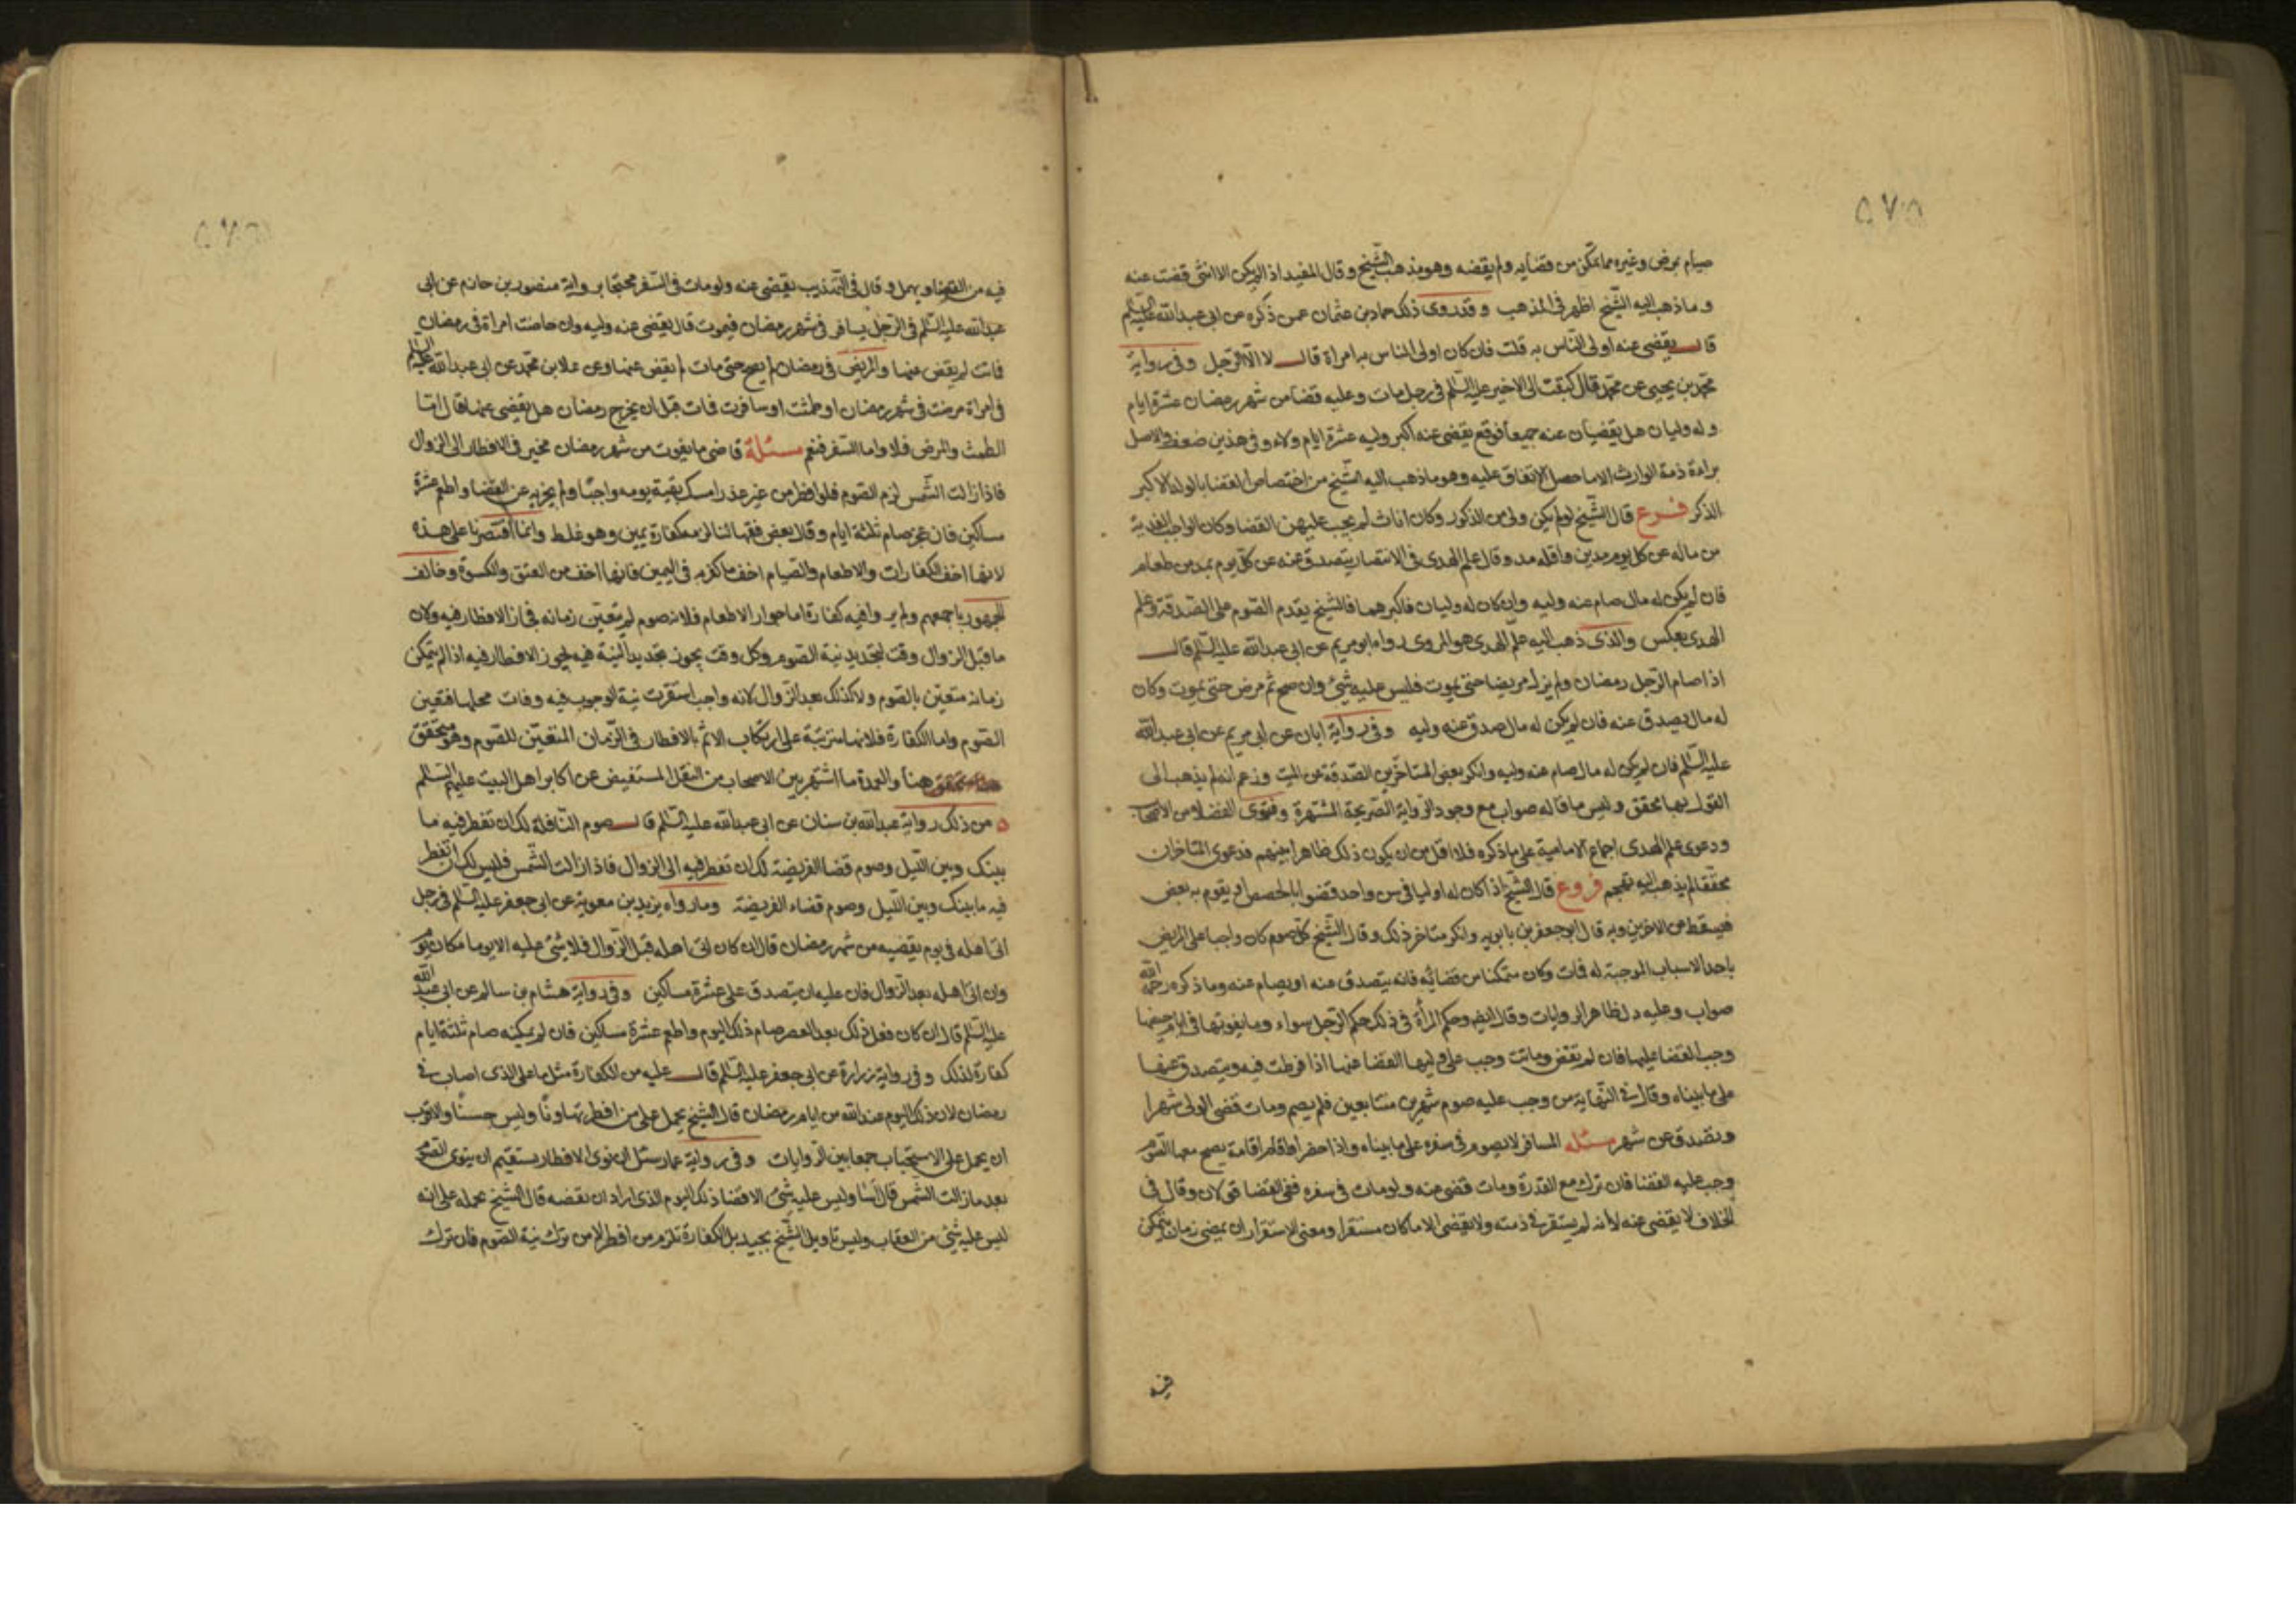 ٥٧٥
صيام بمرض وغيره مما تمكن من قضايه ولم يقضه وهو مذهب الشيخ وقال المفيد اذا لم يكن الا انثى قضت عنه
وما ذهب اليه الشيخ اظهر في المذهب وقد روى ذلك حماد بن عثمان عمن ذكره عن ابي عبدالله عليه السلم
قال يقضى عنه اولى الناس به قلت فان كان اولى الناس به امراة قال لا الا الرجل وفي رواية
محمد بن يحيى عن محمد قال كتبت الى الاخير عليه السلم في رجل مات وعليه قضا من شهر رمضان عشرة ايام
وله وليان هل يقضيان عنه جميعا فوقع يقضى عنه اكبر وليه عشرة ايام ولاء وفي هذين ضعف والاصل
براءة ذمة الوارث الا ما حصل الاتفاق عليه وهو ما ذهب اليه الشيخ من اختصاص القضا بالولد الاكبر
الذكر فرع قال الشيخ لو لم يكن ولى من الذكور وكان اناث لم يجب عليهن القضا وكان الواجب الفدية
من ماله عن كل يوم مدين واقله مد وقال علم الهدى في الانتصار يتصدق عنه عن كل يوم بمد من طعام
فان لم يكن له مال صام عنه وليه وان كان له وليان فاكبرهما فالشيخ يقدم الصوم على الصدقة وعلم
الهدى بعكس والذى ذهب اليه علم الهدى هو المروى رواه ابو مريم عن ابي عبدالله عليه السلم قال
اذا صام الرجل رمضان ولم يزل مريضا حتى يموت فليس عليه شئ وان صح ثم مرض حتى يموت وكان
له مال يصدق عنه فان لم يكن له مال صدق عنه وليه وفي رواية ابان عن ابي مريم عن ابي عبدالله
عليه السلم فان لم يكن له مال صام عنه وليه وانكر بعض المتاخرين الصدقة عن الميت وزعم انه لم يذهب الى
القول بها محقق وليس ما قاله صواب مع وجود الرواية الصريحة المشتهرة وفتوى الفضلا من الاصحاب
ودعوى علم الهدى اجماع الامامية على ما ذكره فلا اقل من ان يكون ذلك ظاهرا بينهم فدعوى المتاخر ان
محققا لم يذهب اليه تهجم فروع قال الشيخ اذا كان له اوليا في سن واحد قضوا بالحصص او يقوم به بعض
فيسقط عن الاخرين وبه قال ابو جعفر بن بابويه وانكر متاخر ذلك وقال الشيخ كل صوم كان واجبا على المريض
باحد الاسباب الموجبة له فات وكان متمكنا من قضائه فانه يتصدق عنه او يصام عنه وما ذكره رحمه الله
صواب وعليه دل ظاهر الروايات وقال ايضا وحكم المرأة في ذلك حكم الرجل سواء وما يفوتها في ايام حيضها
وجب القضا عليها فان لم تقض وماتت وجب على وليها القضا عنها اذا فرطت فيه ويتصدق عنها
على ما بيناه وقال في النهاية من وجب عليه صوم شهرين متتابعين فلم يصم ومات قضى الولى شهرا
وتصدق عن شهر مسئله المسافر لا يصوم في سفره على ما بيناه واذا حضر او اقام اقامة يصح معها الصوم
وجب عليه القضا فان ترك مع القدرة ومات قضى عنه ولو مات في سفره ففي القضا قولان وقال في
الخلاف لا يقضى عنه لانه لم يستقر في ذمته ولا يقضى الا ما كان مستقرا ومعنى الاستقرار ان يمضى زمان يتمكن
فيه من القضا ويهمل وقال في التهذيب يقضى عنه ولو مات في السفر محتجا برواية منصور بن حازم عن ابي
عبدالله عليه السلم في الرجل يسافر في شهر رمضان فيموت قال يقضى عنه وليه وان حاضت امراة في رمضان
فماتت لم يقض عنها والمريض في رمضان لم يصح حتى مات لم يقض عنهما وعن علا بن محمد عن ابي عبدالله عليه السلم
في امراة مرضت في شهر رمضان او طمثت او سافرت فماتت قبل ان يخرج رمضان هل يقضى عنها قال اما
الطمث والمرض فلا واما السفر فنعم مسئلة قاضى ما يفوت من شهر رمضان مخير في الافطار الى الزوال
فاذا زالت الشمس لزم الصوم فلو افطر من غير عذر امسك بقية يومه واجبا ولم يجزيه عن القضا واطعم عشرة
مساكين فان عجز صام ثلثة ايام وقال بعض فقهائنا لزمه كفارة يمين وهو غلط وانما اقتصرنا على هذه
لانها اخف الكفارات والاطعام والصيام اخف ما كفر به في اليمين فانها اخف من العتق والكسوة وخالف
الجمهور باجمعهم ولم يروا فيه كفارة اما جواز الاطعام فلانه صوم لم يتعين زمانه فجاز الافطار فيه ولان
ما قبل الزوال وقت لتجديد نية الصوم وكل وقت يجوز تجديد النية فيه يجوز الافطار فيه اذا لم يتمكن
زمانه متعين بالصوم ولا كذلك بعد الزوال لانه واجب استقرت نية الوجوب فيه وفات محلها فتعين
الصوم واما الكفارة فلانها مترتبة على ارتكاب الاثم بالافطار في الزمان المتعين للصوم وهو متحقق
هنا والعمدة ما اشتهر بين الاصحاب من النقل المستفيض عن اكابر اهل البيت عليهم السلم
من ذلك رواية عبدالله بن سنان عن ابي عبدالله عليه السلم قال صوم النافلة لك ان تفطر فيه ما
بينك وبين الليل وصوم قضا الفريضة لك ان تفطر فيه الى الزوال فاذا زالت الشمس فليس لك ان تفطر
فيه ما بينك وبين الليل وصوم قضاء الفريضة وما رواه يزيد بن معوية عن ابي جعفر عليه السلم في رجل
اتى اهله في يوم يقضيه من شهر رمضان قال ان كان اتى اهله قبل الزوال فلا شئ عليه الا يوما مكان يوم
وان اتى اهله بعد الزوال فان عليه ان يتصدق على عشرة مساكين وفي رواية هشام بن سالم عن ابي عبد الله
عليه السلم قال ان كان فعل ذلك بعد العصر صام ذلك اليوم واطعم عشرة مساكين فان لم يمكنه صام ثلثة ايام
كفارة لذلك وفي رواية زرارة عن ابي جعفر عليه السلم قال عليه من الكفارة مثل ما على الذى اصاب في
رمضان لان ذلك اليوم عند الله من ايام رمضان قال الشيخ يحمل على من افطر تهاونا وليس حسنا والاقرب
ان يحمل على الاستحباب جمعا بين الروايات وفي رواية عمار سئل ان نوى الافطار يستقيم ان ينوى الصوم
بعد ما زالت الشمس قال اسا وليس عليه شئ الا قضا ذلك اليوم الذى اراد ان يقضه قال الشيخ نحمله على انه
ليس عليه شئ من العقاب وليس تاويل الشيخ بجيد بل الكفارة تلزم من افطر لا من ترك نية الصوم فان ترك